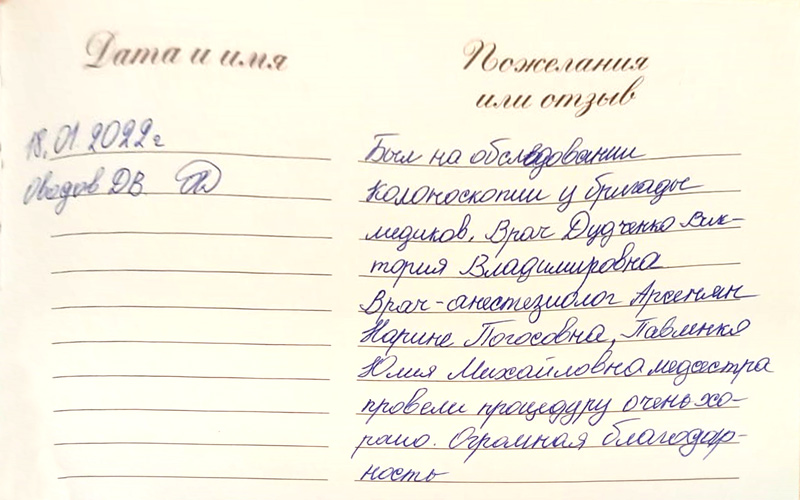 Дата и имя
Пожелания
или отзыв
18.01.2022г
Оводов ДВ.
Был на обследовании
Колоноскопии у бригады
медиков. Врач Дудченко Вик-
тория Владимировна
Врач-анестезиолог Арсенян
Нарине Погосовна, Павленко
Юлия Михайловна медсестра
провели процедуру очень хо-
рошо. Огромная благодар-
ность